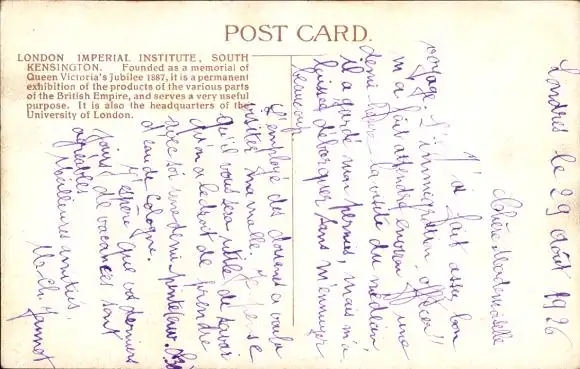 POST CARD.
LONDON IMPERIAL INSTITUTE, SOUTH
KENSINGTON. Founded as a memorial of
Queen Victoria's Jubilee 1887, it is a permanent
exhibition of the products of the various parts
of the British Empire, and serves a very useful
purpose. It is also the headquarters of the
University of London.
Londres le 29 août 1926
Chère Mademoiselle
J'ai fait assez bon
voyage. L'immigration officer
m'a fait attendre environ une
demi-heure la visite du médecin
il a gardé mon permis, mais m'a
laissé débarquer sans m'ennuyer
beaucoup.
L'employé des douanes a voulu
visiter ma malle. Je pense
qu'il vous sera utile de savoir
qu'on a le droit de prendre
avec soi une demi-pinte
d'eau de Cologne.
J'espère que vos derniers
jours de vacances sont
agréables
Meilleures amitiés